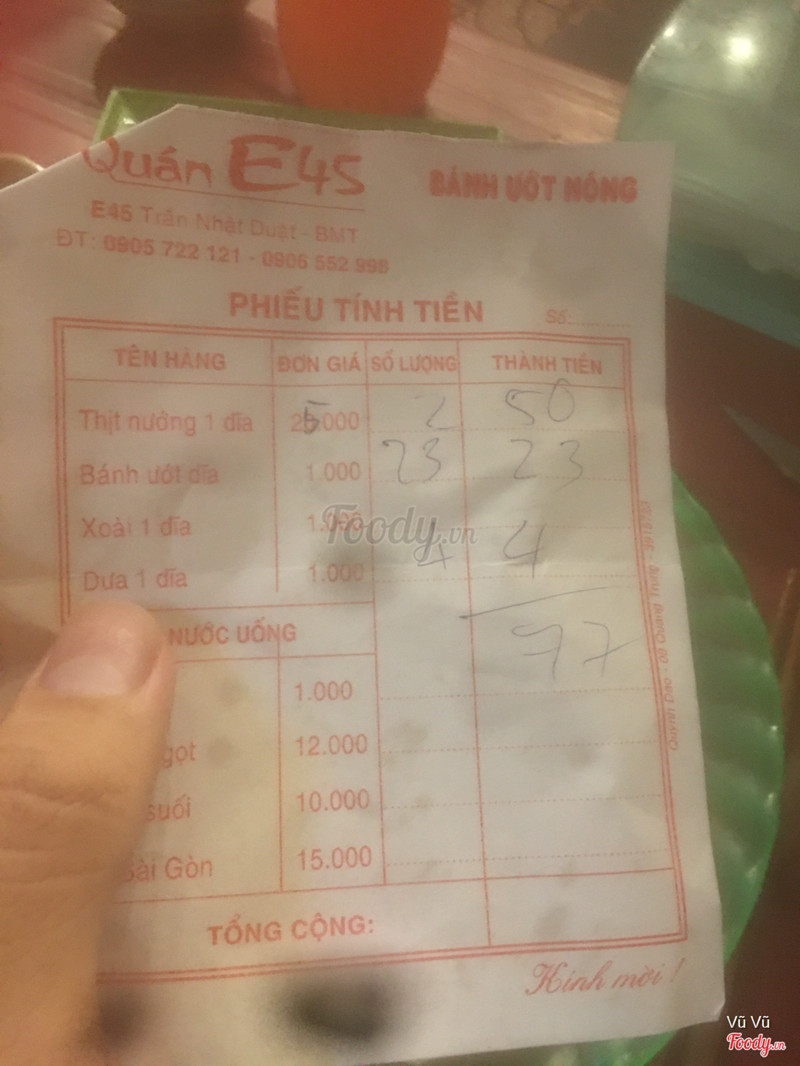 Quán E45
BÁNH ƯỚT NÓNG
E45 Trần Nhật Duật - BMT
ĐT: 0905 722 121 - 0906 552 998
PHIẾU TÍNH TIỀN Số:
TÊN HÀNG ĐƠN GIÁ SỐ LƯỢNG THÀNH TIỀN
Thịt nướng 1 dĩa 25000 2 50
Bánh ướt dĩa 1.000 23 23
Xoài 1 dĩa 1.000
Dưa 1 dĩa 1.000 4 4
77
NƯỚC UỐNG
1.000
gọt 12.000
suối 10.000
Sài Gòn 15.000
TỔNG CỘNG:
Kính mời !
Quỳnh Dao - 09 Quang Trung
Foody.vn
Vũ Vũ
Foody.vn